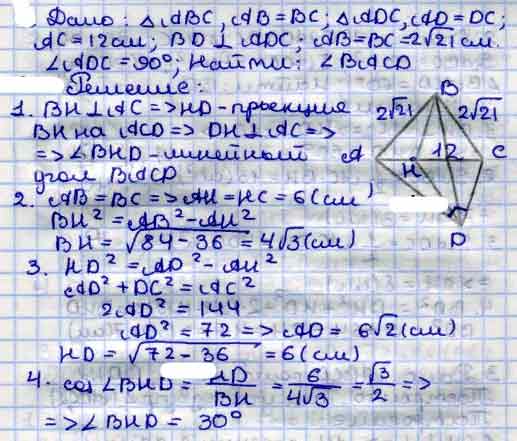 Дано: △ABC, AB=BC; △ADC, AD=DC;
AC=12см; BD⊥ADC; AB=BC=2√21 см.
∠ADC=90°; Найти: ∠BACD
Решение:
1. BH⊥AC=>HD-проекция
BH на ACD=> DH⊥AC=>
=>∠BHD-линейный
угол BACD
2. AB=BC=>AH=HC=6(см)
BH²=AB²-AH²
BH=√84-36=4√3(см)
3. HD²=AD²-AH²
AD²+DC²=AC²
2AD²=144
AD²=72=>AD=6√2(см)
HD=√72-36=6(см)
4. cos∠BHD=HD/BH=6/4√3=√3/2=>
=>∠BHD=30°
B
2√21
2√21
A
12
C
H
D